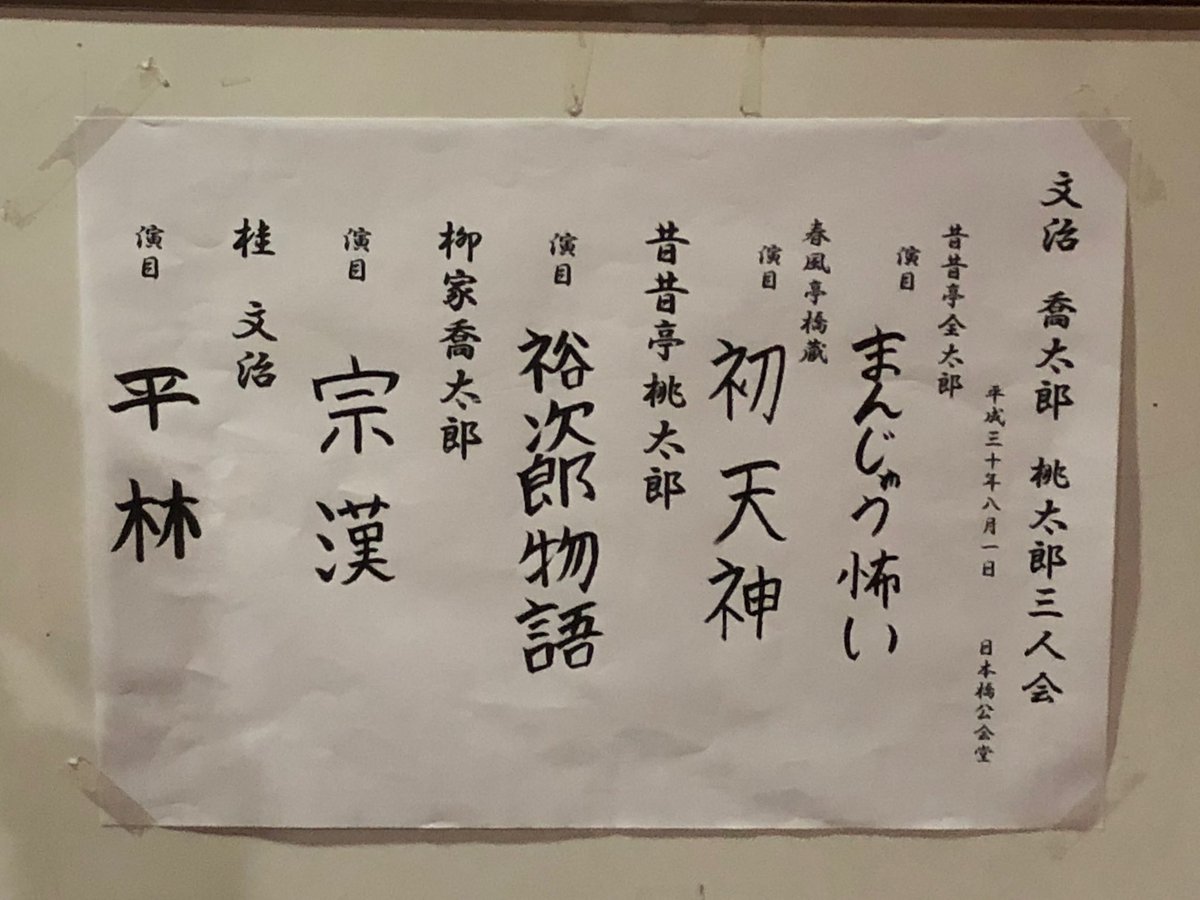 文治 喬太郎 桃太郎三人会
平成三十年八月一日 日本橋公会堂
昔昔亭全太郎
演目 まんじゅう怖い
春風亭橋蔵
演目 初天神
昔昔亭桃太郎
演目 裕次郎物語
柳家喬太郎
演目 宗漢
桂 文治
演目 平林